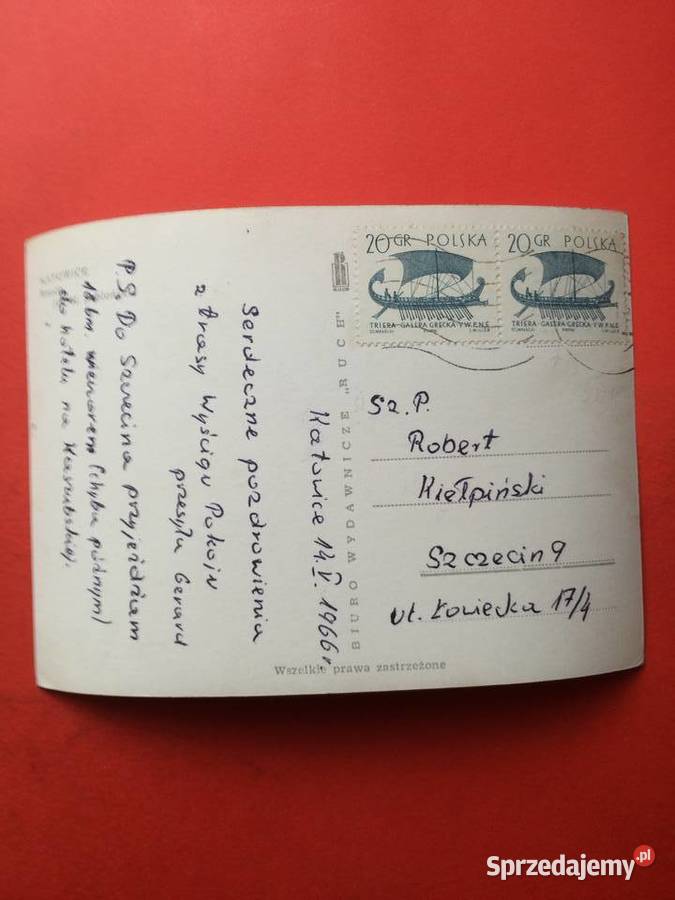 KATOWICE
Katowice 14.V. 1966 r.
Serdeczne pozdrowienia
z trasy Wyścigu Pokoju
przesyła Gerard
P.S. Do Szczecina przyjeżdżam
18 bm wieczorem (chyba późnym)
do hotelu na Kaszubskiej.
BIURO WYDAWNICZE „RUCH"
20 GR POLSKA
TRIERA-GALERA GRECKA V W.P.N.E.
20 GR POLSKA
TRIERA-GALERA GRECKA V W.P.N.E.
Sz. P.
Robert
Kiełpiński
Szczecin 9
ul. Łowiecka 17/4
Wszelkie prawa zastrzeżone
Sprzedajemy.pl